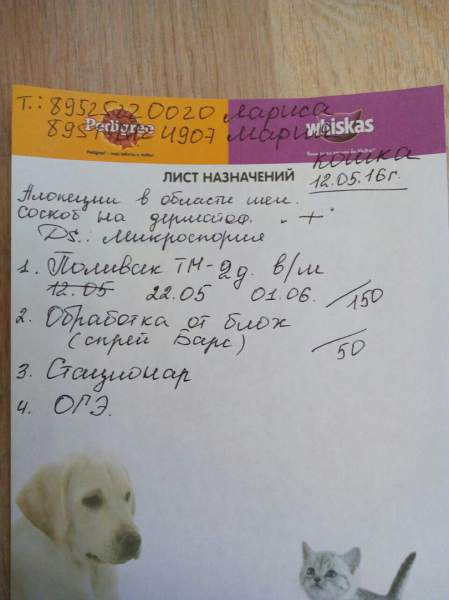 Т.: 8952 0020 Лариса
1907 Мария
Pedigree
whiskas
кошка
ЛИСТ НАЗНАЧЕНИЙ 12.05.16г.
Алопеции в области шеи.
Соскоб на дерматоф. "+"
Ds.: Микроспория
1. Поливак ТМ - 2д. в/м
12.05 22.05 01.06. /150
2. Обработка от блох
(спрей Барс) /50
3. Стационар
4. ОГЭ.